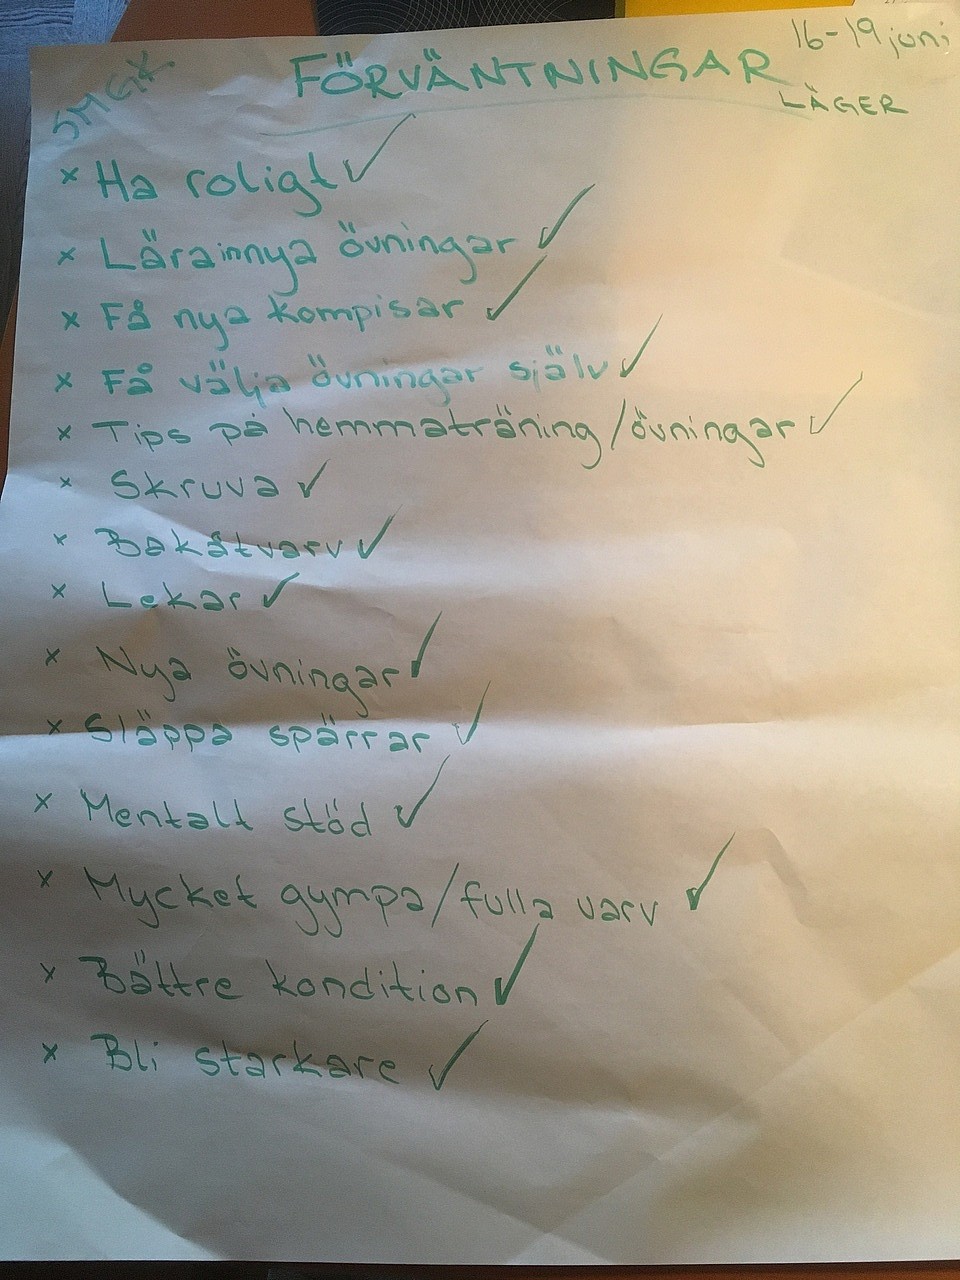 16-19 juni
SMGK
FÖRVÄNTNINGAR
LÄGER
x Ha roligt ✓
x Lära innya övningar ✓
x Få nya kompisar ✓
x Få välja övningar själv ✓
x Tips på hemmaträning/övningar ✓
x Skruva ✓
x Bakåtvarv ✓
x Lekar ✓
x Nya övningar ✓
x Släppa spärrar ✓
x Mentalt stöd ✓
x Mycket gympa/fulla varv ✓
x Bättre kondition ✓
x Bli starkare ✓